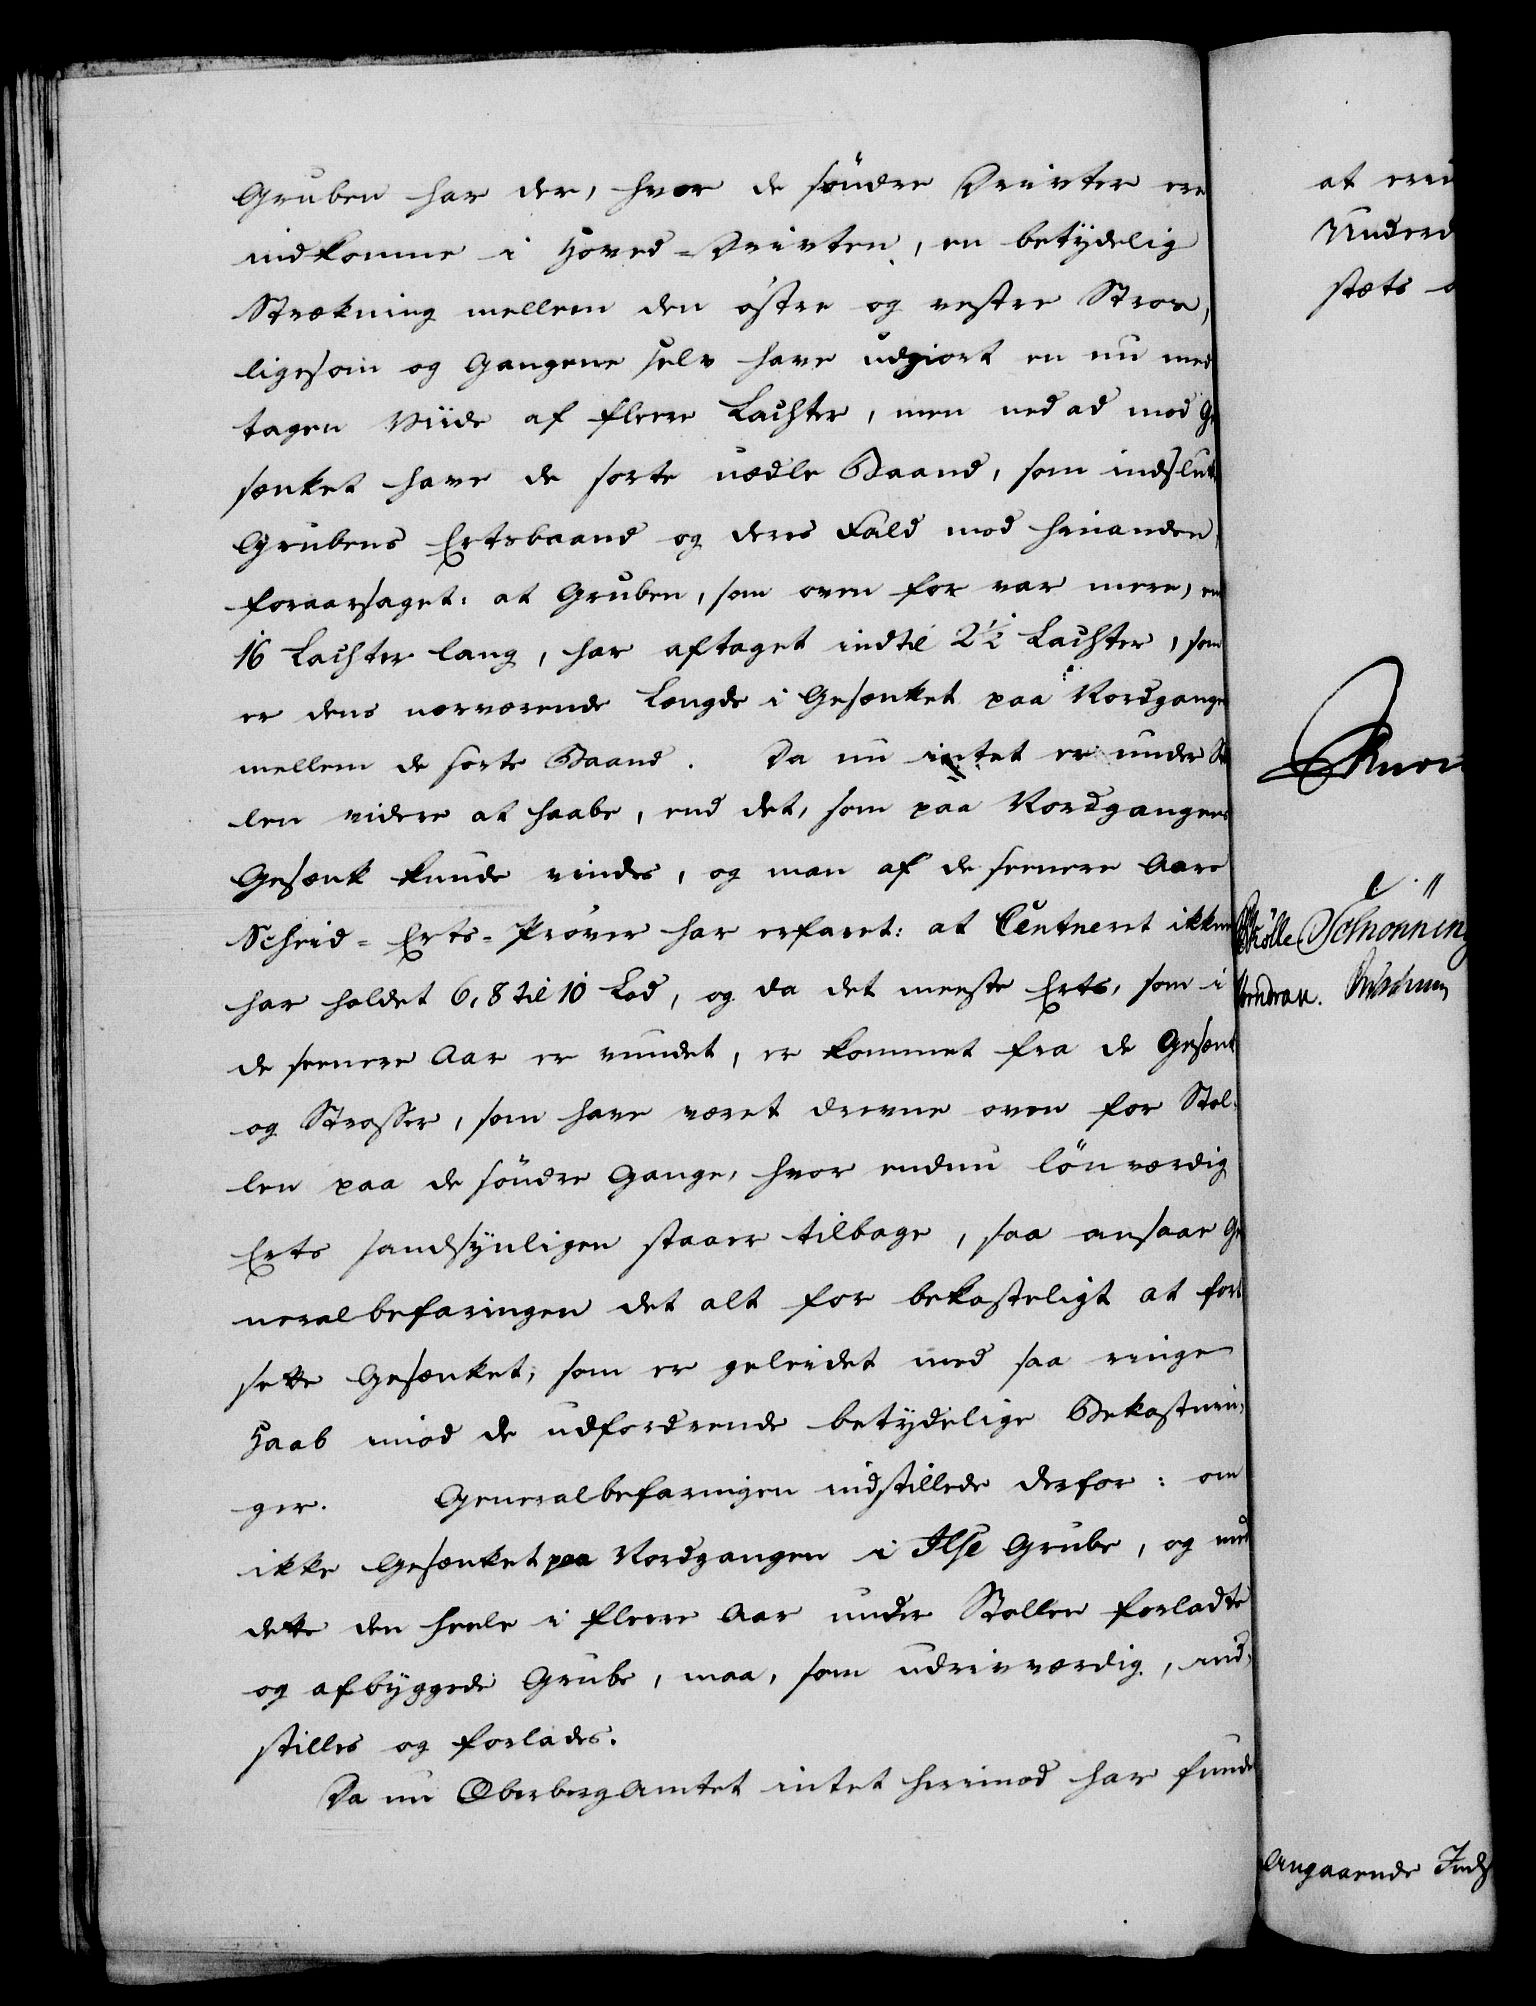 Gruben har der, hvor de söndre Drivter ere
indkomne i Hoved-Drivten, en betydelig
Strækning mellem den östre og vestre Stros,
ligesom og Gangene selv have udgiort en nu med
tagen Viide af fleere Lachter, men ned ad mod Ge
sænket have de sorte uædle Baand, som indslut
Grubens Ertsbaand og deres Fald mod hinanden,
foraarsaget: at Gruben, som oven for var mere, en
16 Lachter lang, har aftaget indtil 2½ Lachter, som
er dens nærværende Længde i Gesænket paa Nordgange
mellem de sorte Baand. Da nu intet er under St
len videre at haabe, end det, som paa Nordgangens
Gesænk kunde vindes, og man af de seenere Aars
Scheid-Erts-Prøver har erfaret: at Centneret ikkun
har holdet 6, 8 til 10 Lod, og da det meeste Erts, som i
de seenere Aar er vundet, er kommet fra de Gesænk
og Strosser, som have været drevne oven for Stol-
len paa de söndre Gange, hvor endnu lönværdig
Erts sandsynligen staaer tilbage, saa ansaae Ge
neralbefaringen det alt for bekosteligt at fort
sette Gesænket, som er geleidet med saa ringe
Haab imod de udfordrende betydelige Bekostnin-
ger. Generalbefaringen indstillede derfor: om
ikke Gesænket paa Nordgangen i Ilse Grube, og med
dette den heele i fleere Aar under Stollen forladte
og afbyggede Grube, maa, som udrivværdig, ind-
stilles og forlades.
Da nu OberbergAmtet intet herimod har funde
at
Underd
stets
Knor
Schönning
Angaaende Inds